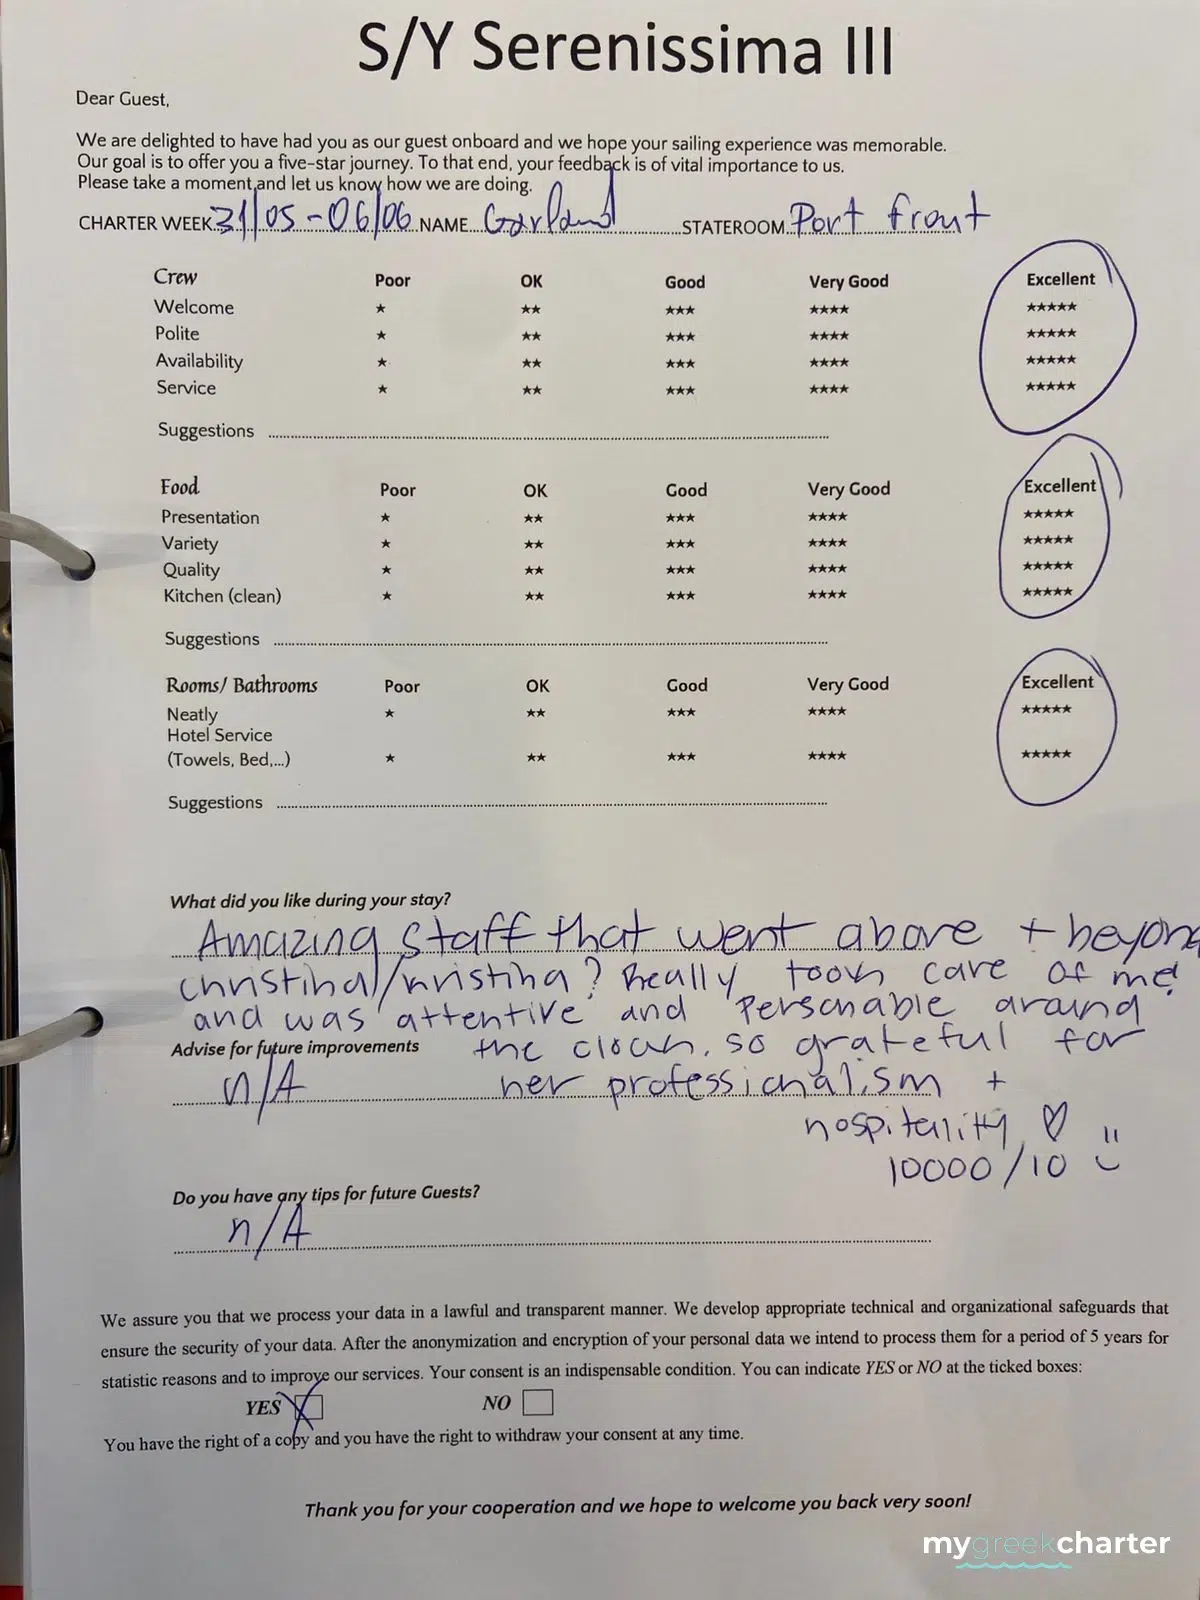 S/Y Serenissima III
Dear Guest,
We are delighted to have had you as our guest onboard and we hope your sailing experience was memorable.
Our goal is to offer you a five-star journey. To that end, your feedback is of vital importance to us.
Please take a moment and let us know how we are doing.
CHARTER WEEK 31/05-06/06 NAME Garland STATEROOM Port front
Crew Poor OK Good Very Good Excellent
Welcome ★ ★★ ★★★ ★★★★ ★★★★★
Polite ★ ★★ ★★★ ★★★★ ★★★★★
Availability ★ ★★ ★★★ ★★★★ ★★★★★
Service ★ ★★ ★★★ ★★★★ ★★★★★
Suggestions
Food Poor OK Good Very Good Excellent
Presentation ★ ★★ ★★★ ★★★★ ★★★★★
Variety ★ ★★ ★★★ ★★★★ ★★★★★
Quality ★ ★★ ★★★ ★★★★ ★★★★★
Kitchen (clean) ★ ★★ ★★★ ★★★★ ★★★★★
Suggestions
Rooms/ Bathrooms Poor OK Good Very Good Excellent
Neatly ★ ★★ ★★★ ★★★★ ★★★★★
Hotel Service
(Towels, Bed,...) ★ ★★ ★★★ ★★★★ ★★★★★
Suggestions
What did you like during your stay?
Amazing staff that went above + beyond
christina/kristina? Really took care of me
and was attentive and personable around
the clock, so grateful for
her professionalism +
hospitality ♡
10000/10 :)
Advise for future improvements
n/A
Do you have any tips for future Guests?
n/A
We assure you that we process your data in a lawful and transparent manner. We develop appropriate technical and organizational safeguards that
ensure the security of your data. After the anonymization and encryption of your personal data we intend to process them for a period of 5 years for
statistic reasons and to improve our services. Your consent is an indispensable condition. You can indicate YES or NO at the ticked boxes:
YES X NO
You have the right of a copy and you have the right to withdraw your consent at any time.
Thank you for your cooperation and we hope to welcome you back very soon!
mygreekcharter